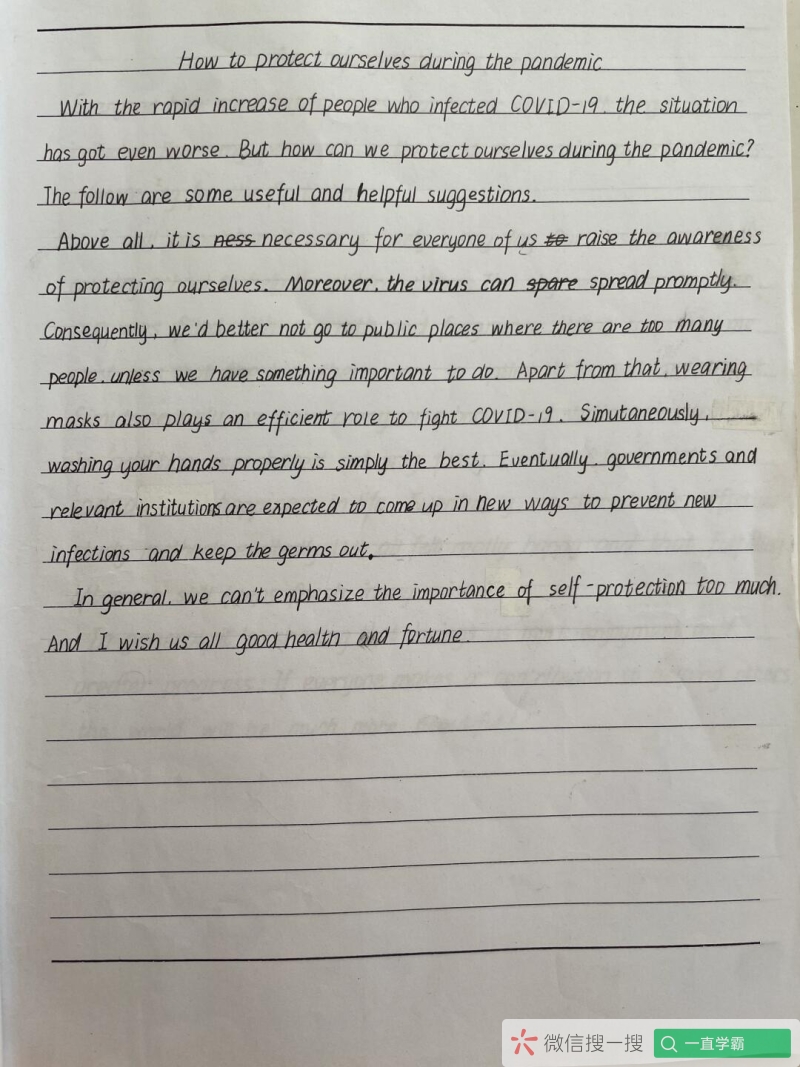 How to protect ourselves during the pandemic
With the rapid increase of people who infected COVID-19, the situation
has got even worse. But how can we protect ourselves during the pandemic?
The follow are some useful and helpful suggestions.
Above all, it is ness necessary for everyone of us to raise the awareness
of protecting ourselves. Moreover, the virus can spare spread promptly.
Consequently, we'd better not go to public places where there are too many
people, unless we have something important to do. Apart from that, wearing
masks also plays an efficient role to fight COVID-19. Simutaneously,
washing your hands properly is simply the best. Eventually, governments and
relevant institutions are expected to come up in new ways to prevent new
infections and keep the germs out.
In general, we can't emphasize the importance of self-protection too much.
And I wish us all good health and fortune.
微信搜一搜
一直学霸